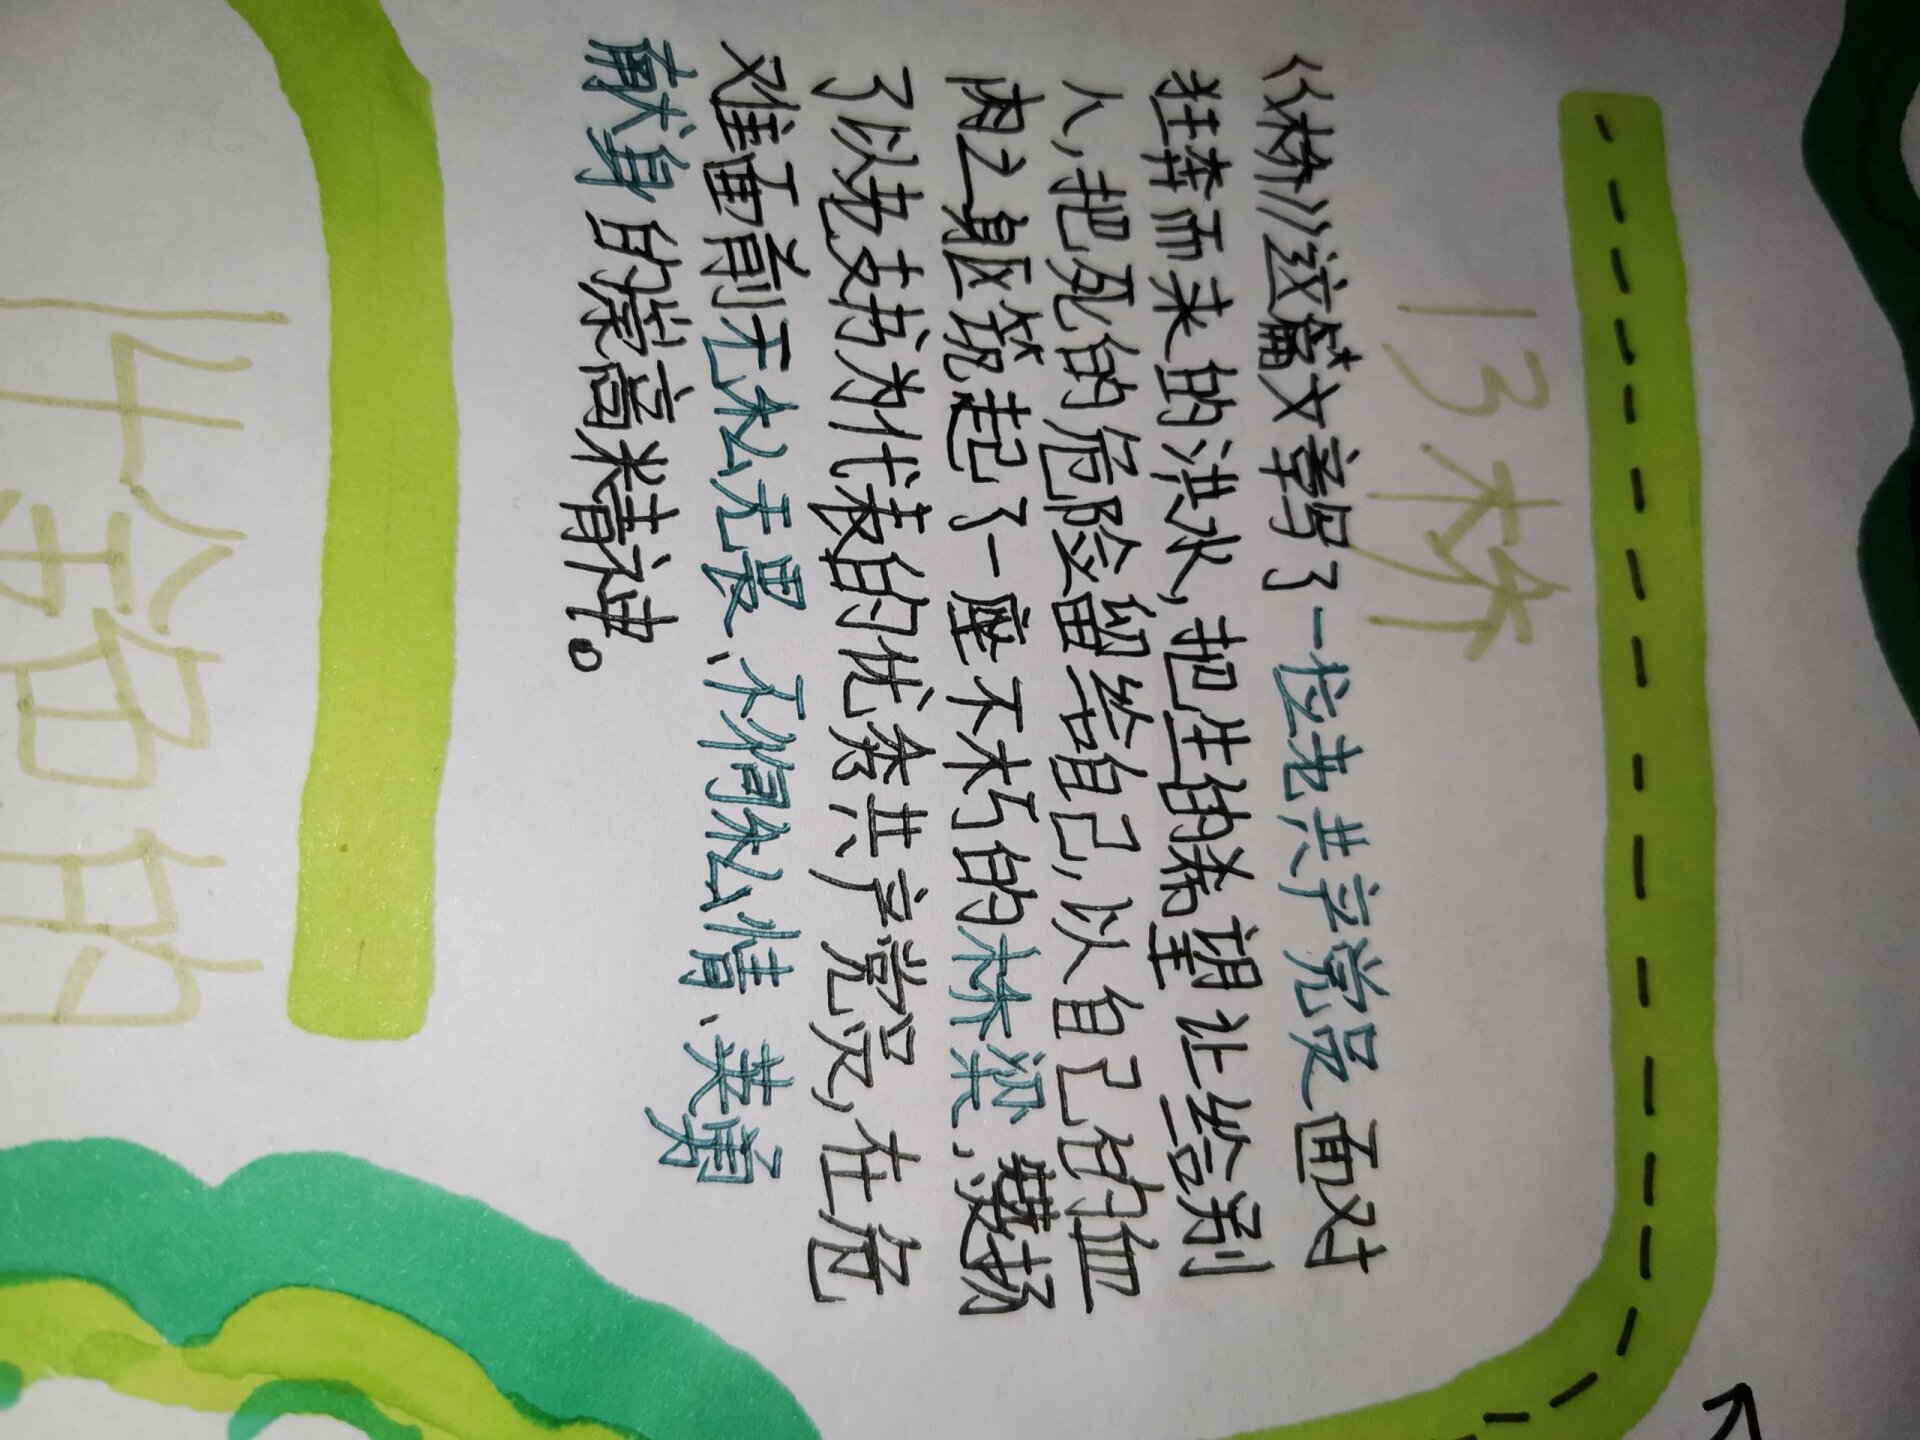 13 桥
《桥》这篇文章写了一位老共产党员面对
狂奔而来的洪水,把生的希望让给别
人,把死的危险留给自己,以自己的血
肉之躯筑起了一座不朽的桥梁,赞扬
了以老支书为代表的优秀共产党员,在危
难面前无私无畏、不徇私情、英勇
献身的崇高精神。
的